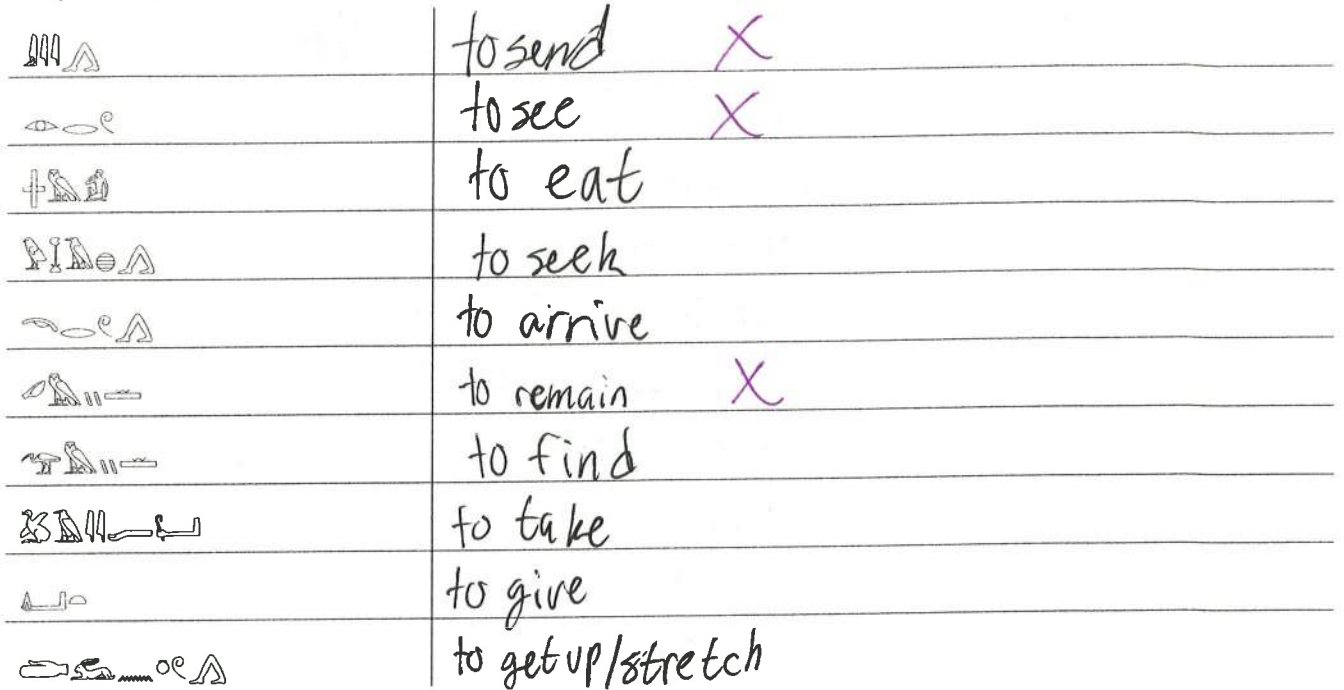 𓇍𓇋𓇋𓂻 to send X
𓁹𓂋𓏲 to see X
𓏶𓅓𓀁 to eat
to seek
to arrive
to remain X
𓅠𓅓𓏭𓏛 to find
to take
to give
𓂧𓃹𓈖𓏌𓏲𓂻 to get up/stretch